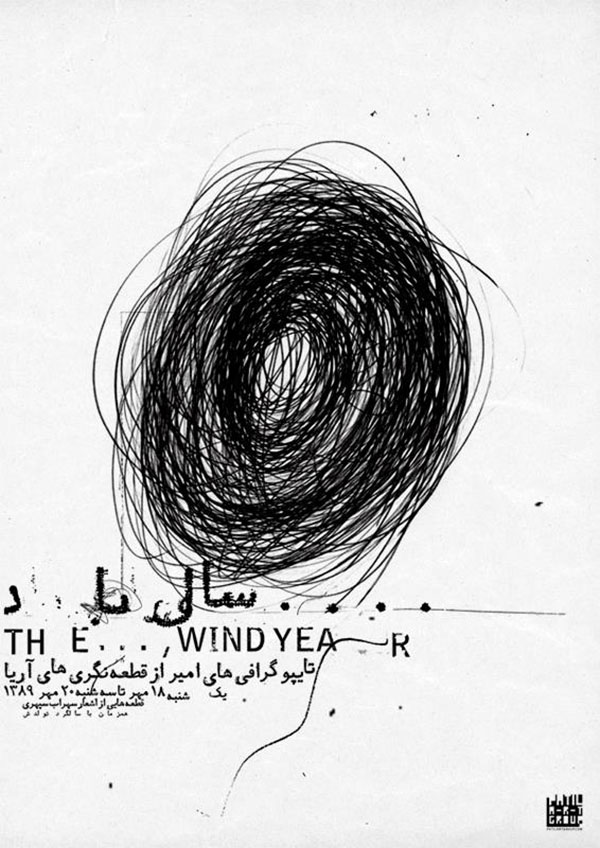 سال با د ....
TH E...,WIND YEA R
تایپو گرافی های امیر از قطعه نگری های آریا
یک شنبه ۱۸ مهر تا سه شنبه ۲۰ مهر ۱۳۸۹
قطعه هایی از اشعار سهراب سپهری
همزمان با سالگرد تولدش